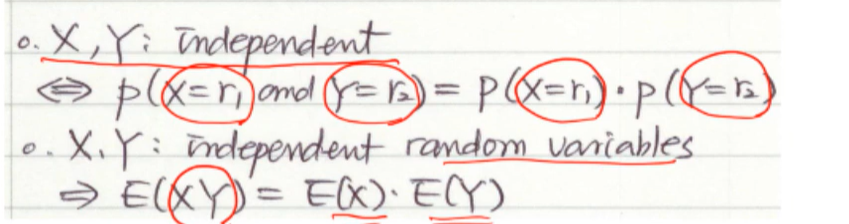 o. X, Y: independent
⇔ p(X=r₁ and Y=r₂) = p(X=r₁)·p(Y=r₂)
o. X, Y: independent random variables
⇒ E(XY) = E(X)·E(Y)